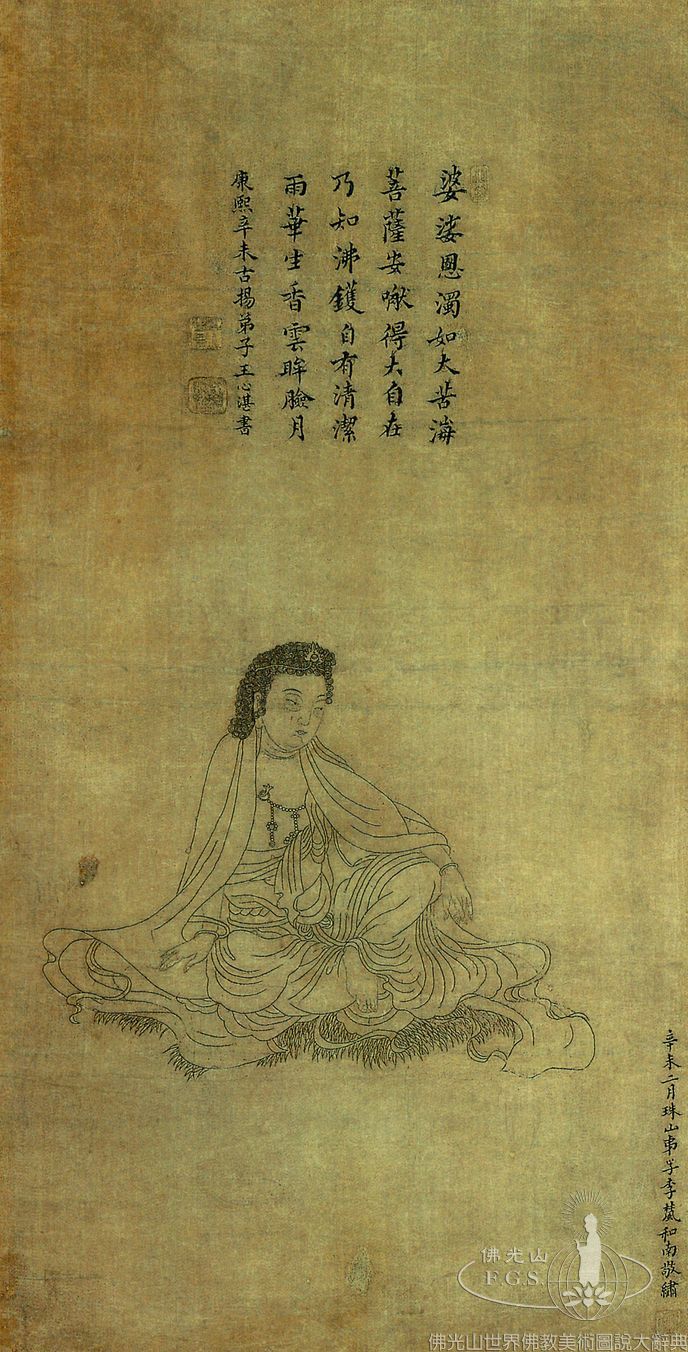 婆娑恩濁如大苦海
菩薩安啾得大自在
乃知沸鑊自有清潔
雨華生香雲眸臉月
康熙辛未古揚弟子王心湛書
辛未二月珠山弟子李 和南敬繡
佛光山
F.G.S.
佛光山世界佛教美術圖說大辭典